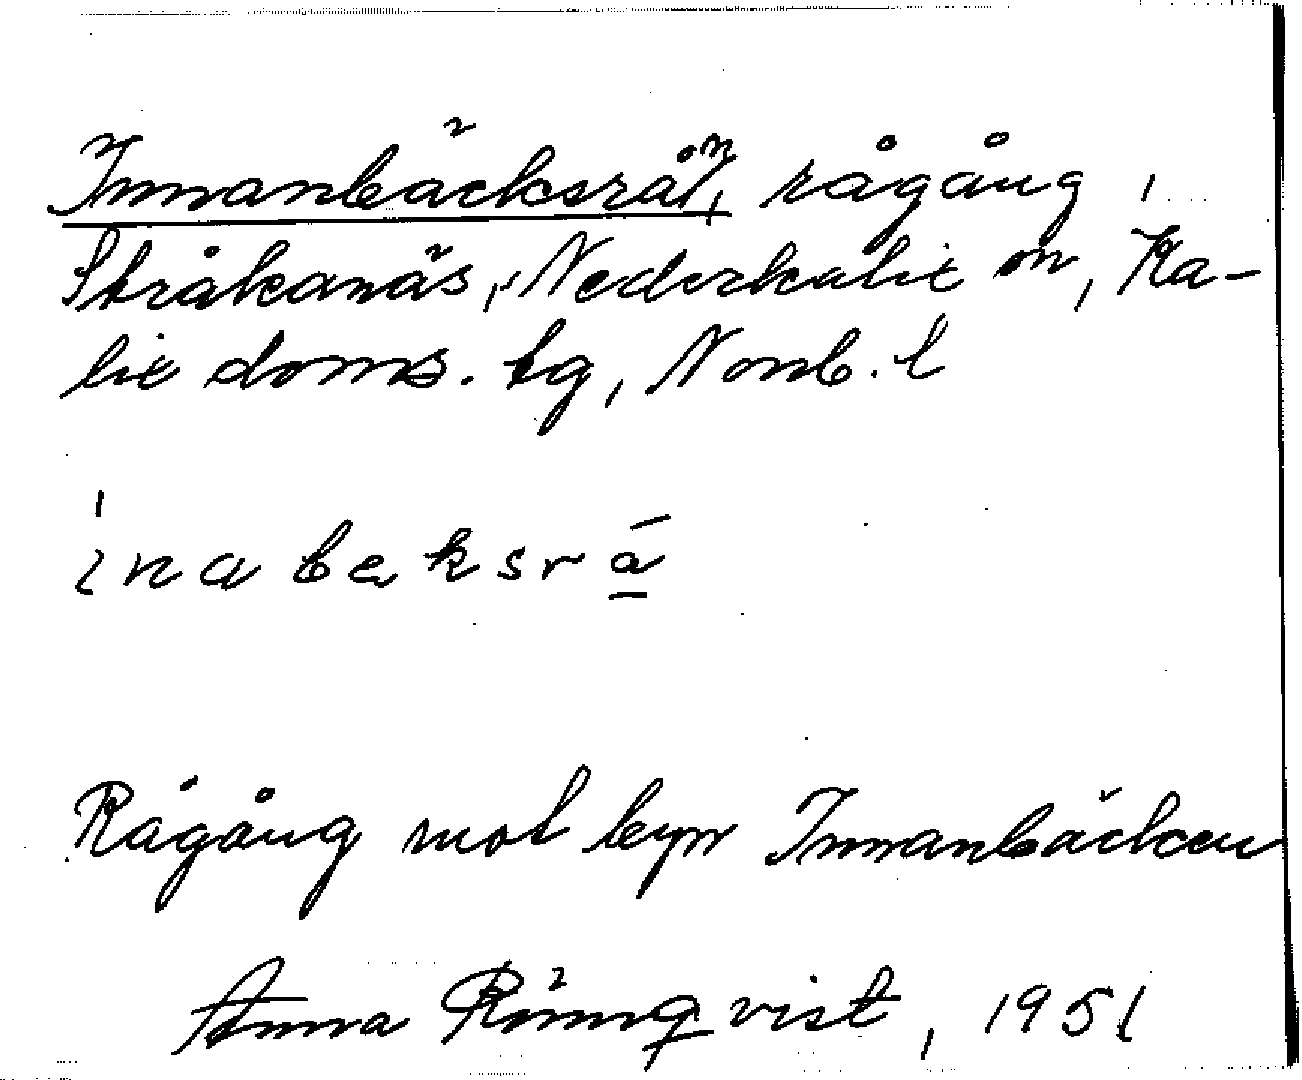 Innanbäcksrån, rågång i
Stråkanäs, Nederkalix sn, Ka-
lix doms. tg, Norrb. l
ínabeksrā̱
Rågång mot byn Innanbäcken
Anna Rönnqvist, 1951